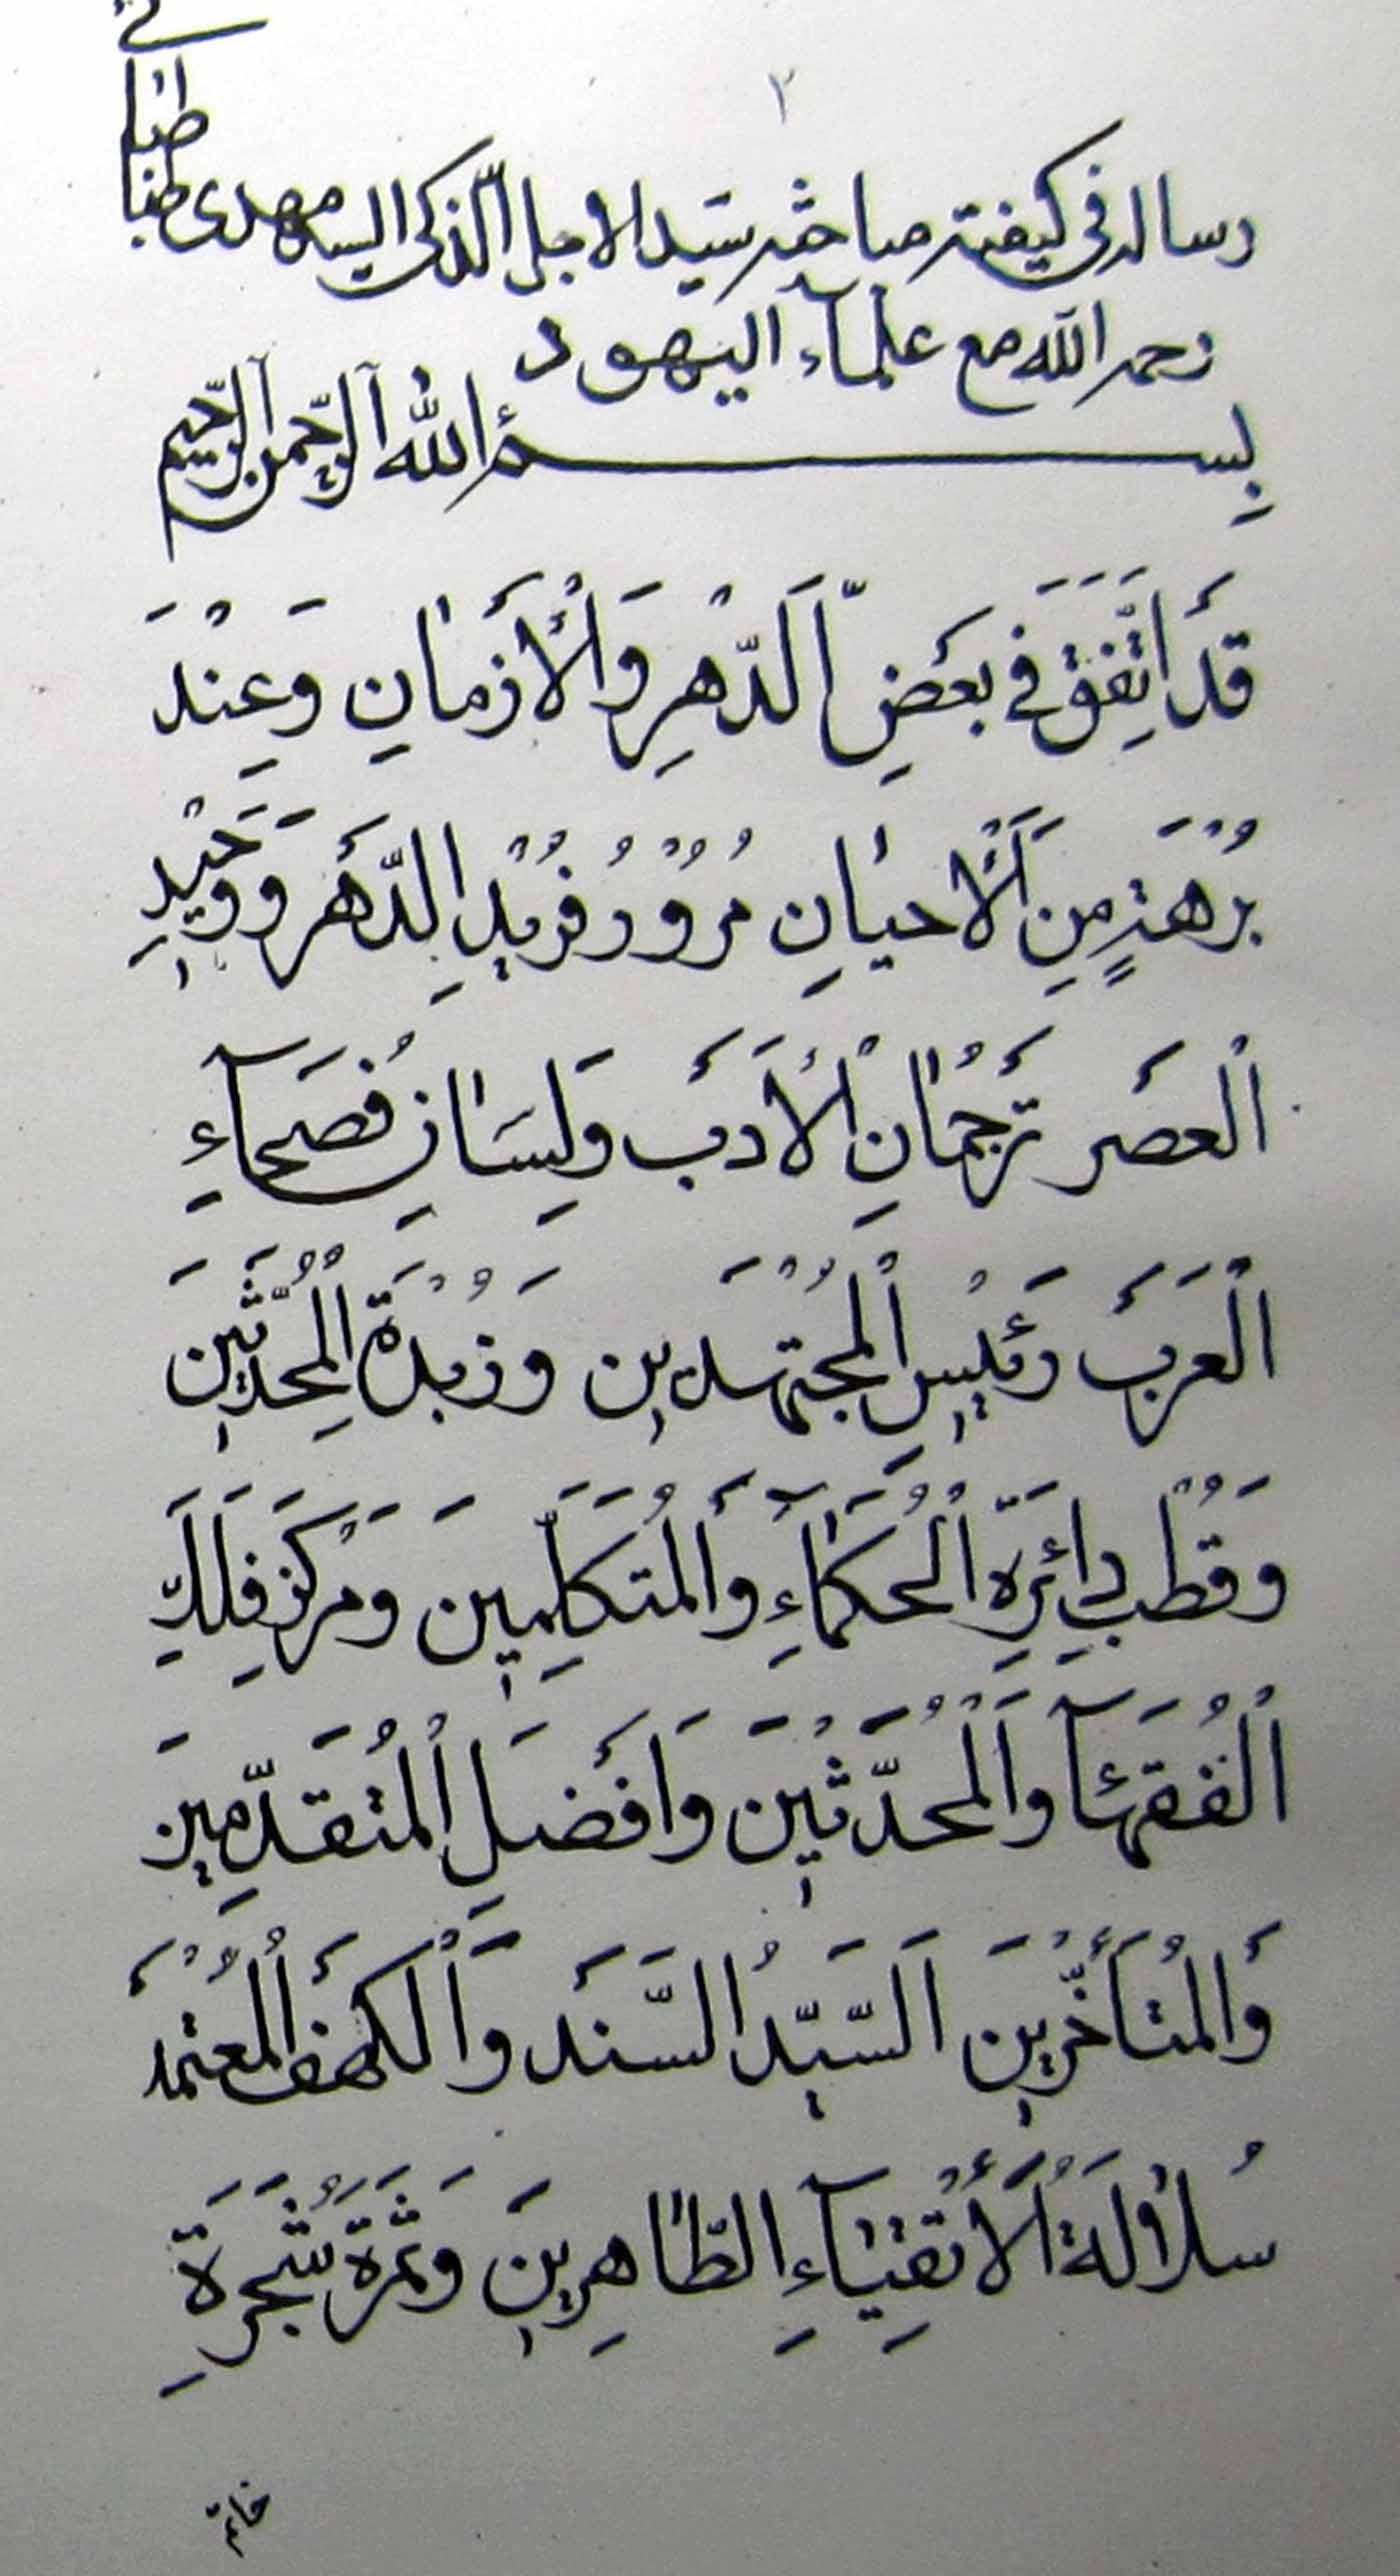 ٢
رساله فى كيفية مباحثه سيد الاجل الذكى السيد مهدى طباطبائى
رحمه الله مع علمآء اليهود
بِسْم اللّٰه الرّحمن الرّحيم
قَد اتَّفَقَ فى بَعضِ اَلدّهرِ وَالْأَزمانِ وَعِنْدَ
بُرْهَةٍ مِنَ اَلْأحيانِ مُرُوْرُ فُرِيْدِ الدّهَر وَوَحيْدِ
اْلعصَر تَرجُمٰانِ اْلأَدَب وَلِسَانِ فُصَحآءِ
اْلعَرَبَ رَئيْسِ اْلمُجْتَهدين وَزُبْدَةَ اْلمُحِدّثينَ
وَقُطْبِ دٰائِرَةِ اْلحُكَمآءِ وَاَلمُتَكَلِّمينَ وَمَركَز فِلَكِ
اْلفُقَهآء وَاَلْمُحَدّثيْنَ وَاَفضَلِ اْلمُتَقدّمِينَ
وَالمُتأَخّرْينَ اَلسّيّدُ السَّنَد وَاَلْكهَف اْلمُعْتمَد
سُلاٰلَةُ اَلأَتْقِيٰآءِ الطّاهِرينَ وَثَمَرَةَ شُجَرَةِ